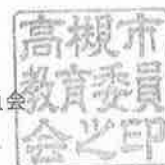 会
高槻市
教育委員
会之印